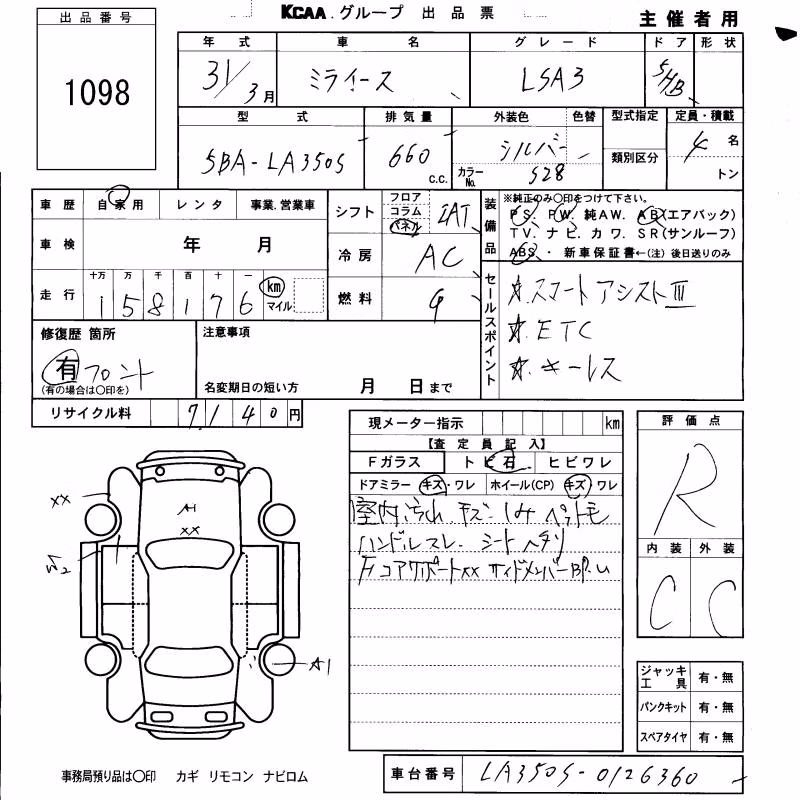 KCAA.グループ 出品票
主催者用
出品番号
1098
年式 車名 グレード ドア 形状
31/3月 ミライース LSA3 5HB
型式 排気量 外装色 色替 型式指定 定員・積載
5BA-LA350S 660 c.c. シルバー 4名
カラーNo. S28 類別区分 トン
車歴 自家用 レンタ 事業.営業車
車検 年 月
十万 万 千 百 十 一
走行 158176 km マイル
シフト フロア コラム パネル IAT
冷房 AC
燃料 G
装備品
※純正のみ〇印をつけて下さい。
PS. PW. 純AW. AB(エアバック)
TV. ナビ. カワ. SR(サンルーフ)
ABS. ・ 新車保証書←(注) 後日送りのみ
セールスポイント
☆.スマートアシストIII
☆.ETC
☆.キーレス
修復歴 箇所
有 フロント
(有の場合は〇印を)
注意事項
名変期日の短い方 月 日まで
リサイクル料 7140円
現メーター指示 km
【査定員記入】
Fガラス トビ石 ヒビワレ
ドアミラー キズ・ワレ ホイール(CP) キズ ワレ
室内 汚れ キズ シミ ペット毛
ハンドルスレ シート ヘタリ
Fコアサポートxx サイドメンバー
評価点
R
内装 外装
C C
A1
xx
xx
W2
A1
ジャッキ工具 有・無
パンクキット 有・無
スペアタイヤ 有・無
事務局預り品は〇印 カギ リモコン ナビロム
車台番号 LA350S-0126360